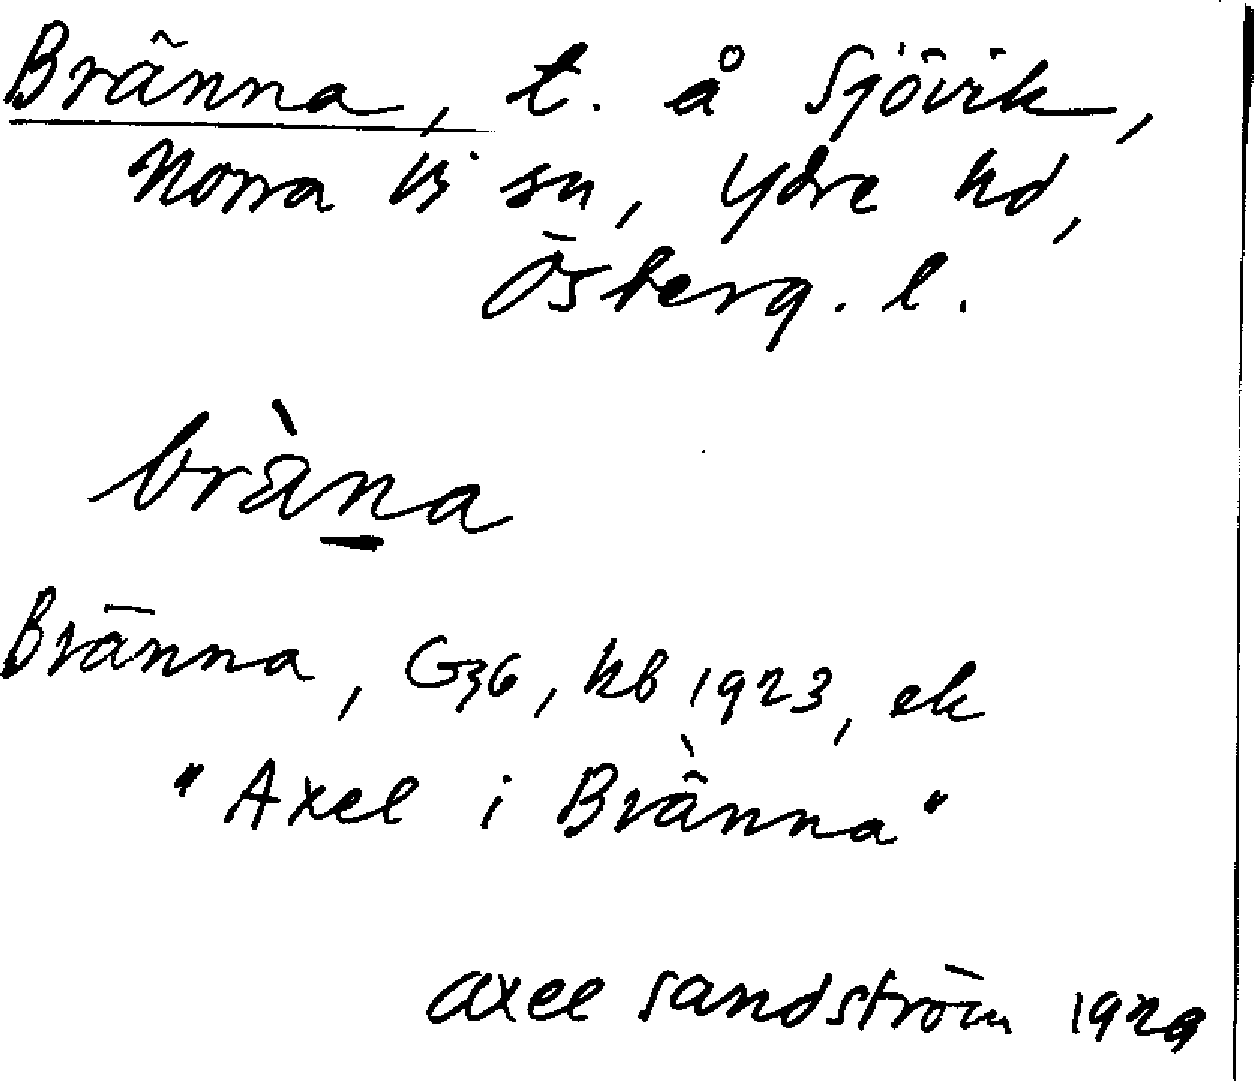 Bränna, t. å Sjövik,
Norra Vi sn, Ydre hd,
Österg. l.
bràna
Bränna, G36, kb 1923, ek
"Axel i Brä̀nna"
Axel Sandström 1929